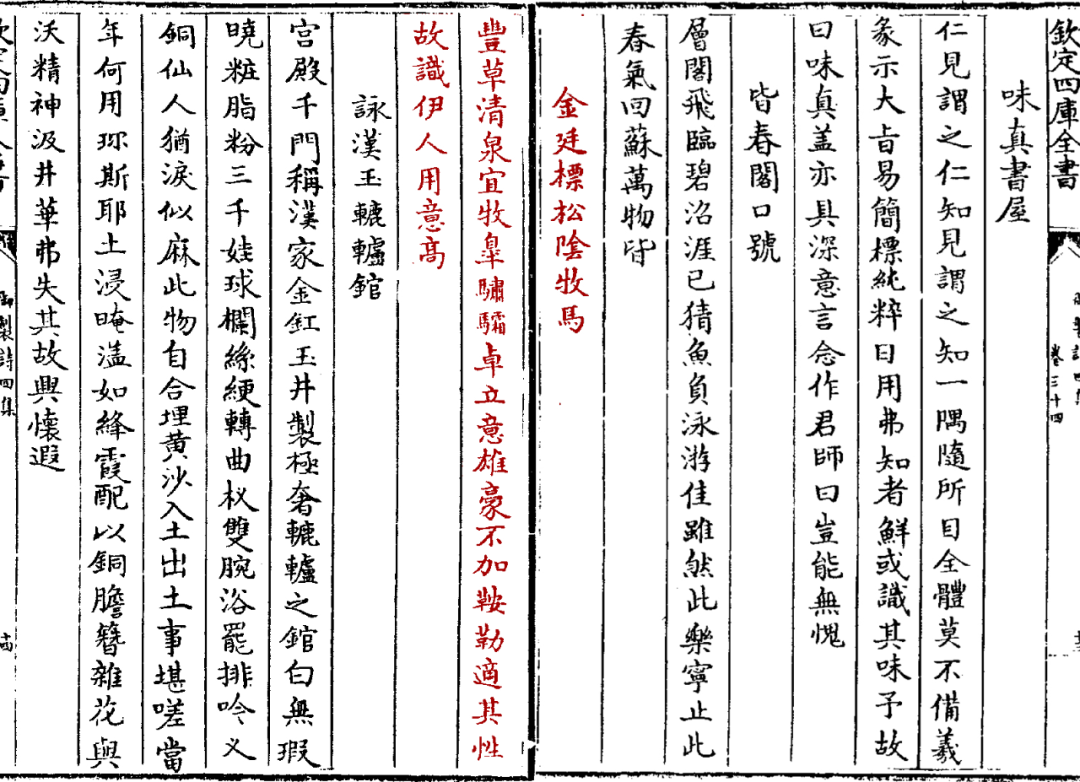 欽定四庫全書
卷三十四
味真書屋
仁見謂之仁知見謂之知一隅隨所目全體莫不備羲
彖示大旨易簡標純粹日用弗知者鮮或識其味予故
曰味真盖亦具深意言念作君師曰豈能無愧
皆春閣口號
層閣飛臨碧沼涯已猜魚負泳游佳雖然此樂寧止此
春氣回蘇萬物皆
金廷標松陰牧馬
豐草清泉宜牧臯驌驦卓立意雄豪不加鞍勒適其性
故識伊人用意高
詠漢玉轆轤錧
宫殿千門稱漢家金釭玉井製極奢轆轤之錧白無瑕
曉粧脂粉三千娃球欄絲綆轉曲杈雙腕浴罷排吟义
銅仙人猶淚似麻此物自合埋黄沙入土出土事堪嗟當
年何用琢斯耶土浸晻溘如絳霞配以銅膽簪雜花與
沃精神汲井華弗失其故興懷遐
御製詩四集